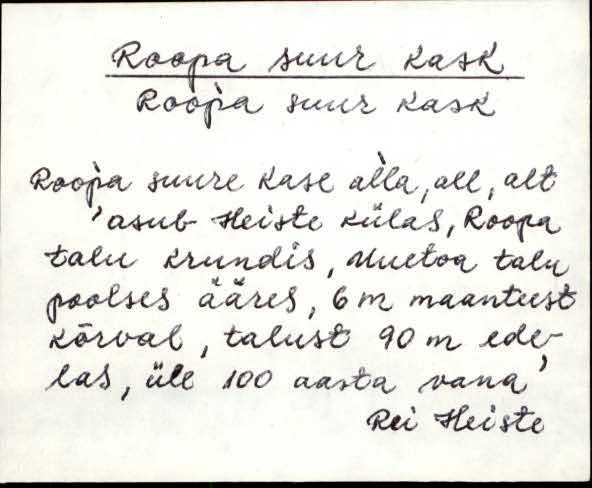 Roopa suur kask
Roopa suur kask
Roopa suure kase alla, all, alt
'asub Heiste külas, Roopa
talu krundis, Uuetoa talu
poolses ääres, 6 m maanteest
kõrval, talust 90 m ede-
las, üle 100 aasta vana'
Rei Heiste